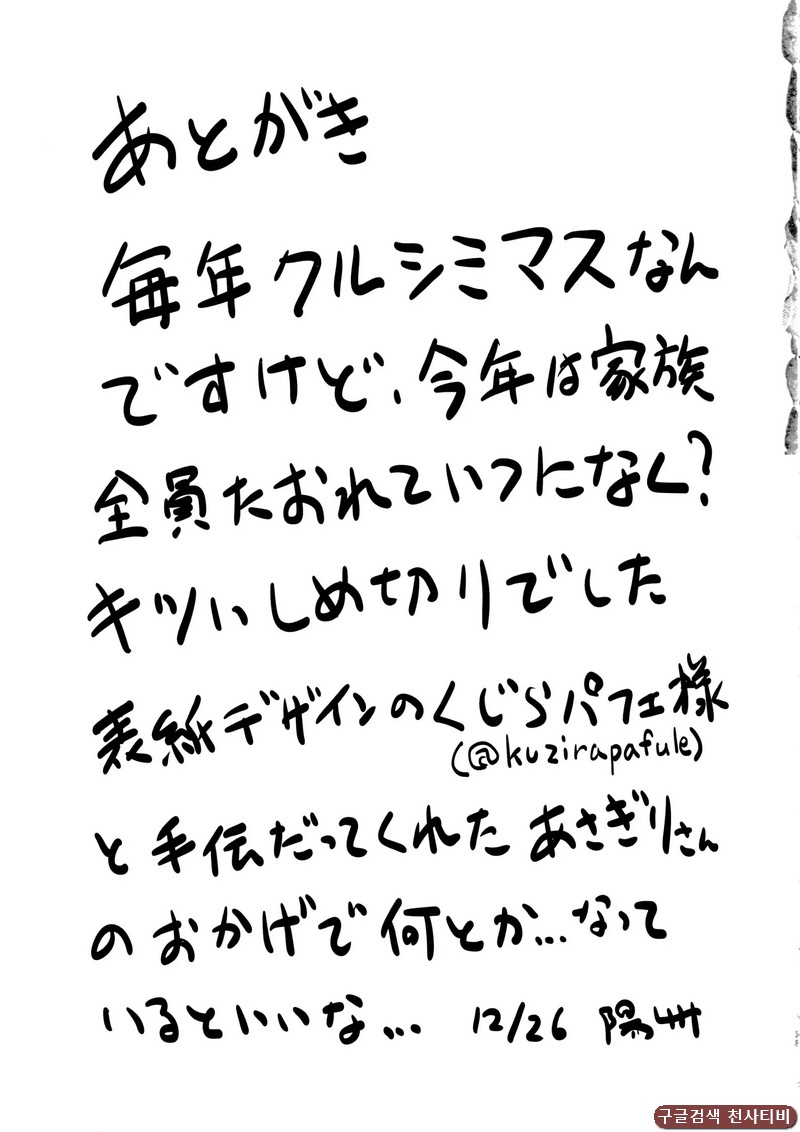 あとがき
毎年クルシミマスなん
ですけど、今年は家族
全員たおれていつになく?
キツいしめ切りでした
表紙デザインのくじらパフェ様
(@kuzirapafule)
と手伝だってくれたあさぎりさん
のおかげで何とか…なって
いるといいな… 12/26 陽州
구글검색 천사티비